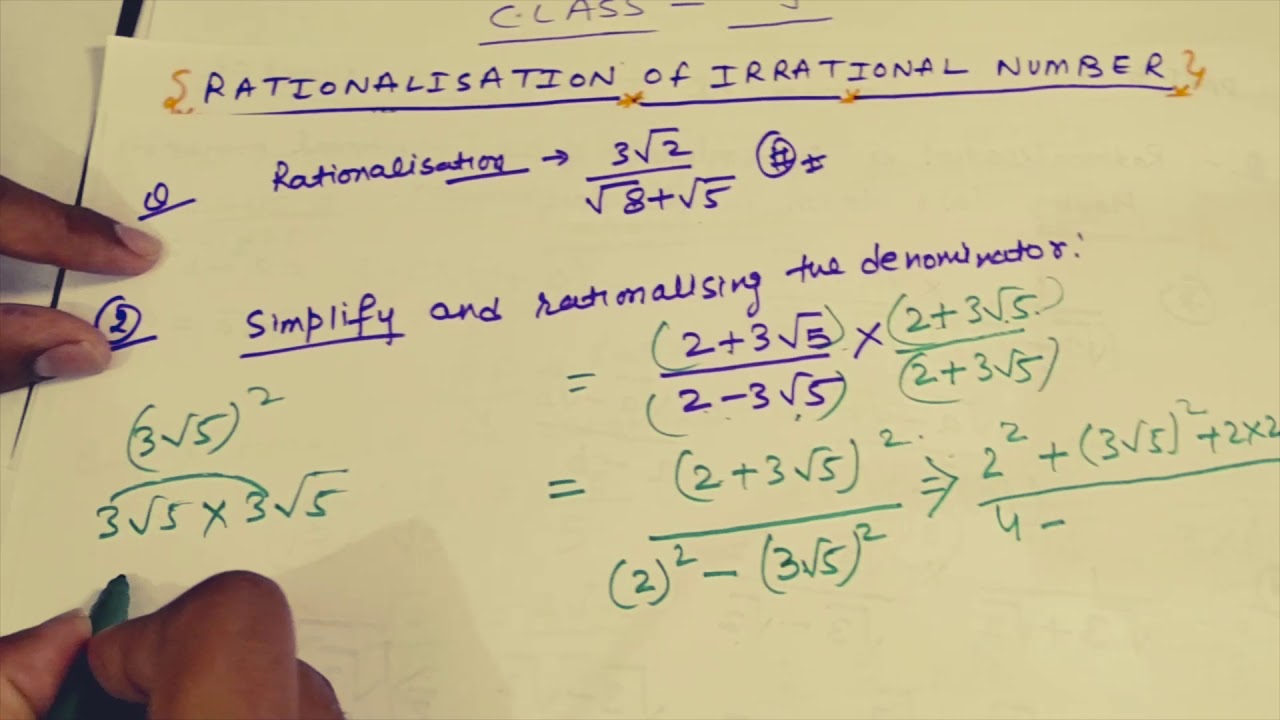 CLASS -
{RATIONALISATION of IRRATIONAL NUMBER}
Q Rationalisation → 3√2 / √8+√5
(2) Simplify and rationalising the denominator:
= (2+3√5) / (2-3√5) × (2+3√5) / (2+3√5)
(3√5)²
3√5 × 3√5
= (2+3√5)² / (2)² - (3√5)² ⇒ 2² + (3√5)² + 2×2 / 4 -